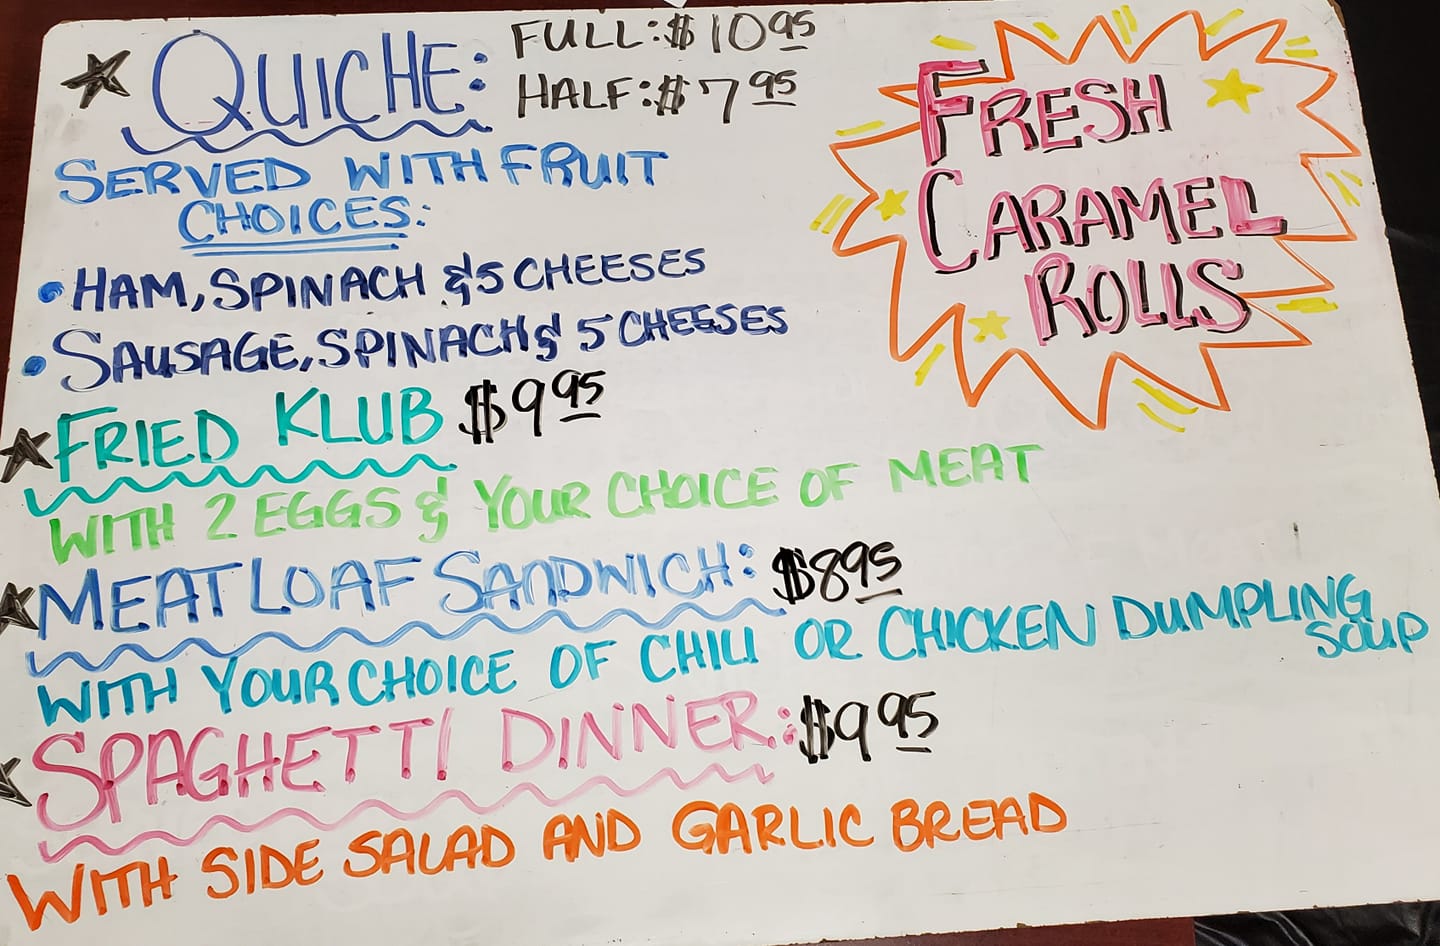 QUICHE: FULL: $10.95
HALF: $7.95
SERVED WITH FRUIT
CHOICES:
• HAM, SPINACH & 5 CHEESES
• SAUSAGE, SPINACH & 5 CHEESES
FRIED KLUB $9.95
WITH 2 EGGS & YOUR CHOICE OF MEAT
MEATLOAF SANDWICH: $8.95
WITH YOUR CHOICE OF CHILI OR CHICKEN DUMPLING
SOUP
SPAGHETTI DINNER: $9.95
WITH SIDE SALAD AND GARLIC BREAD
FRESH
CARAMEL
ROLLS